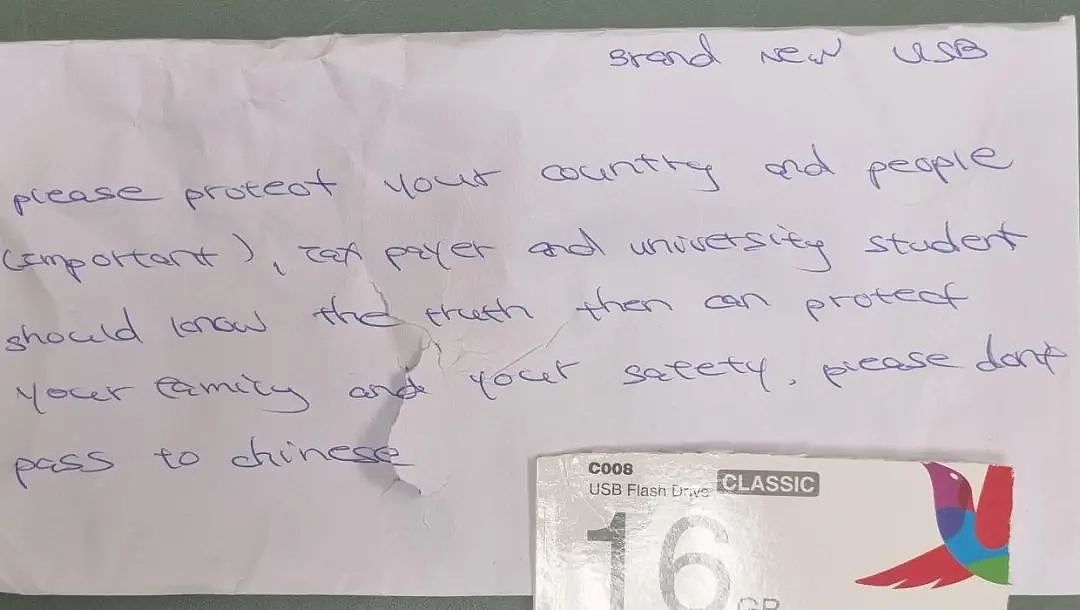 Brand New USB
please protect your country and people
(important), Tax payer and university student
should know the truth then can protect
your family and your safety, please dont
pass to chinese
C008
USB Flash Drive CLASSIC
16
GB